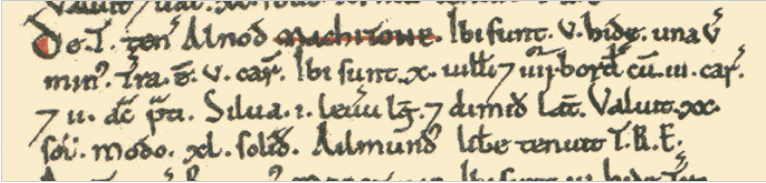 De.T. ten' Alnod MACHITONE. Ibi sunt. v. hidę. una v'
min'. Tra. ē. v. car'. Ibi sunt. x. uilli 7 iiij. bord' cū. iii. car'.
7 ii. ac̄ p̄ti. Silua. i. leuu lḡ. 7 dimid lat̄. Valuit. xx.
sol'. modo. xl. solid'. Ailmund' libe tenuit T.R.E.